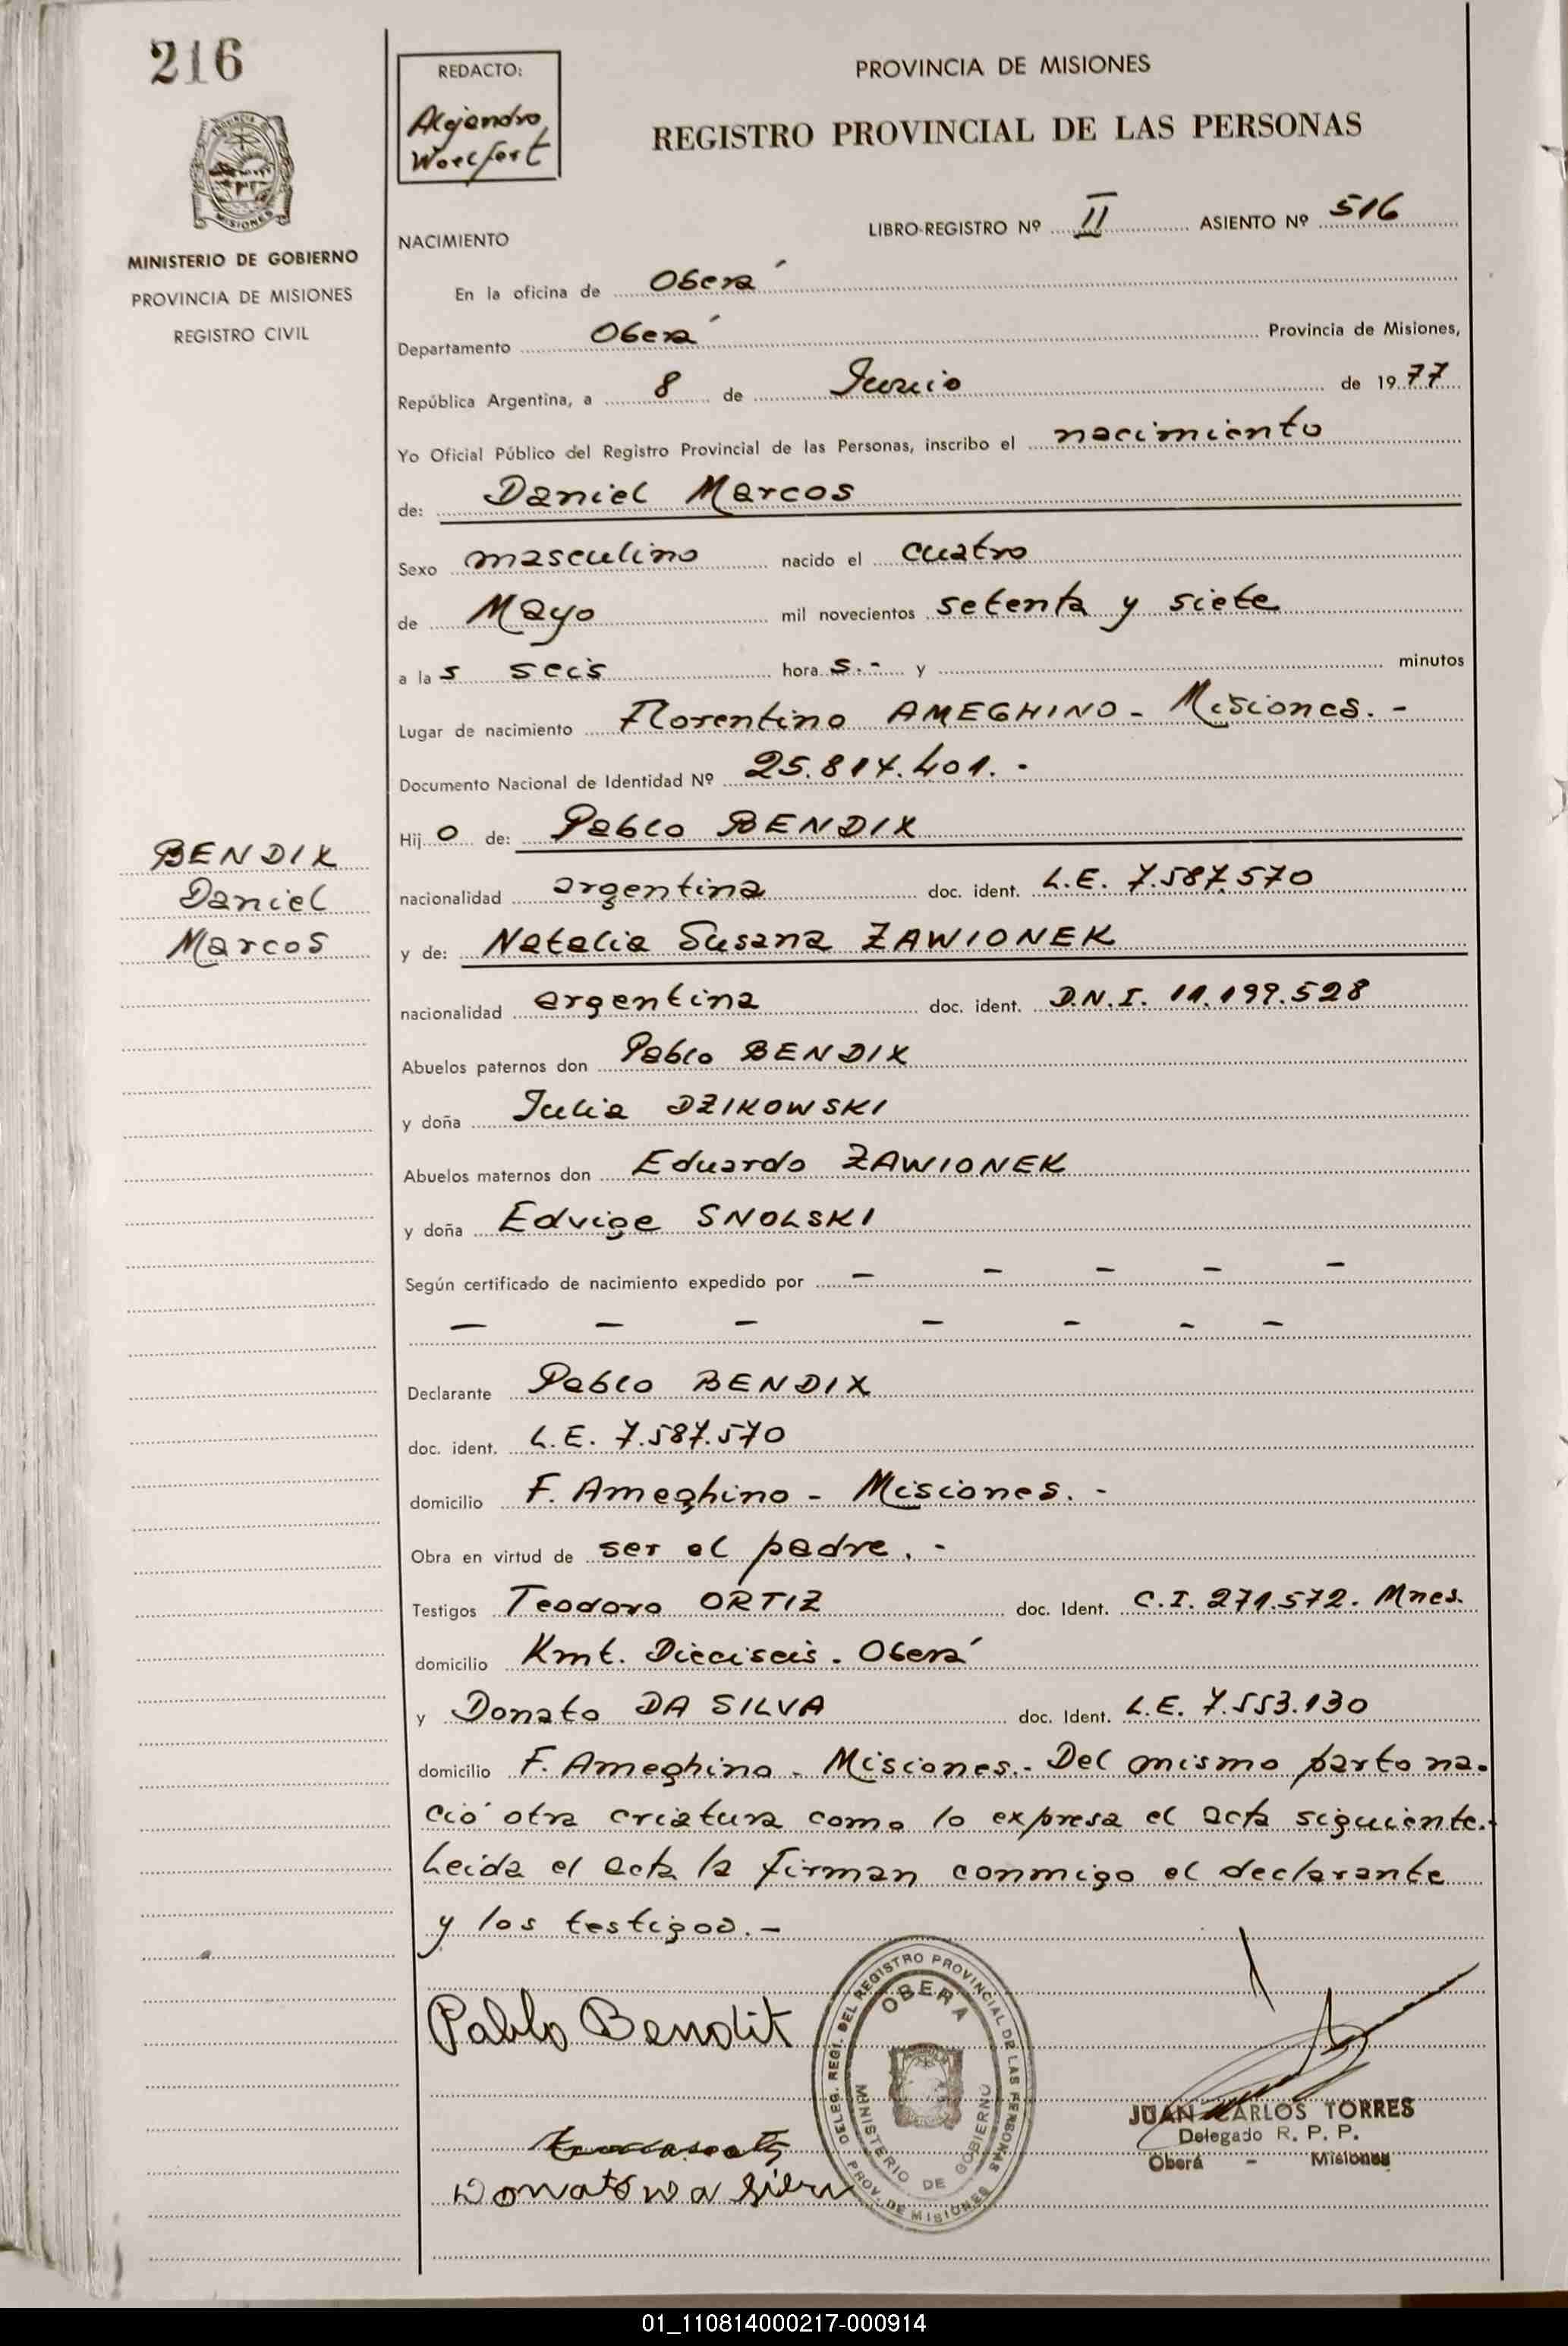 216
PROVINCIA
MISIONES
MINISTERIO DE GOBIERNO
PROVINCIA DE MISIONES
REGISTRO CIVIL
REDACTO:
Alejandro
PROVINCIA DE MISIONES
REGISTRO PROVINCIAL DE LAS PERSONAS
NACIMIENTO
LIBRO-REGISTRO Nº II ASIENTO Nº 516
En la oficina de Oberá
Departamento Oberá Provincia de Misiones,
República Argentina, a 8 de Junio de 1977
Yo Oficial Público del Registro Provincial de las Personas, inscribo el nacimiento
de: Daniel Marcos
Sexo masculino nacido el cuatro
de Mayo mil novecientos setenta y siete
a las seis horas.- y minutos
Lugar de nacimiento Florentino AMEGHINO - Misiones. -
Documento Nacional de Identidad Nº 25.814.401. -
Hijo de: Pablo BENDIX
BENDIX
Daniel
Marcos
nacionalidad argentina doc. ident. L.E. 7.587.570
y de: Natalia Susana ZAWIONEK
nacionalidad argentina doc. ident. D.N.I. 11.199.528
Abuelos paternos don Pablo BENDIX
y doña Julia DZIKOWSKI
Abuelos maternos don Eduardo ZAWIONEK
y doña Edvige SNOLSKI
Según certificado de nacimiento expedido por - - - - -
- - - - - - -
Declarante Pablo BENDIX
doc. ident. L.E. 7.587.570
domicilio F. Ameghino - Misiones. -
Obra en virtud de ser el padre. -
Testigos Teodoro ORTIZ doc. Ident. C.I. 271.572. Mnes.
domicilio Kmt. Dieciseis. Oberá
y Donato DA SILVA doc. Ident. L.E. 7.553.130
domicilio F. Ameghino - Misiones.- Del mismo parto na-
ció otra criatura como lo expresa el acta siguiente.-
Leida el acta la firman conmigo el declarante
y los testigos.-
Pablo Bendit
DELEG. REGI. DEL REGISTRO PROVINCIAL DE LAS PERSONAS
OBERA
MINISTERIO DE GOBIERNO
PROV. DE MISIONES
JUAN CARLOS TORRES
Delegado R. P. P.
Oberá - Misiones
01_110814000217-000914